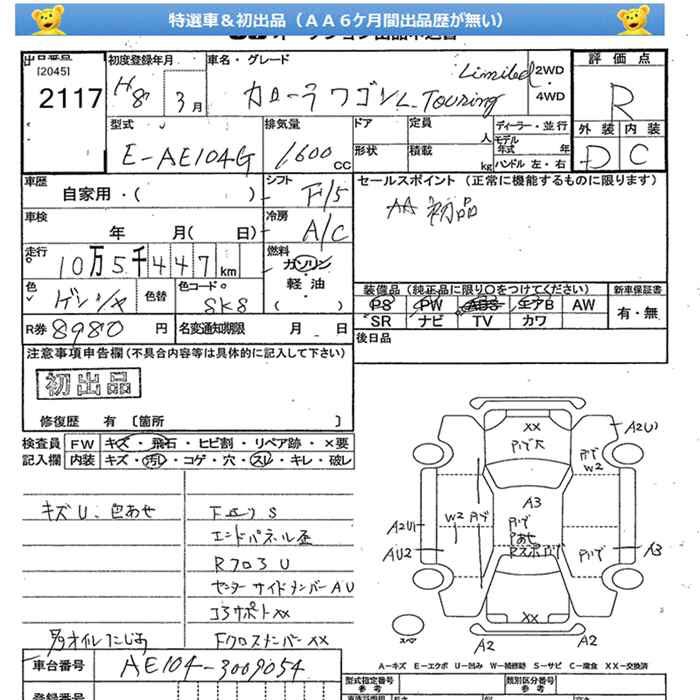 特選車＆初出品（ＡＡ６ケ月間出品歴が無い）
[2045]
2117
初度登録年月
H8 3月
車名・グレード
カローラワゴン L-Touring
Limited
2WD
4WD
評価点
R
外装 内装
D C
型式
E-AE104G
排気量
1600 CC
ドア
定員
人
形状
積載
kg
ディーラー・並行
モデル年式
年
ハンドル 左・右
車歴
自家用・（ ）
シフト
F/5
セールスポイント（正常に機能するものに限ります）
AA 初品
車検
年 月（ 日）
冷房
A/C
走行
10万5千447km
燃料
ガソリン・
軽油
（ ）
色
色替
色コード
8K8
装備品（純正品に限り○をつけてください）
PS PW ABS エアB AW
SR ナビ TV カワ
新車保証書
有・無
R券 8980 円
名変通知期限 月 日
後日品
注意事項申告欄（不具合内容等は具体的に記入して下さい）
初出品
修復歴 有〔箇所 〕
検査員 FW キズ・飛石・ヒビ割・リペア跡・×要
記入欄 内装 キズ・汚レ・コゲ・穴・スレ・キレ・破レ
キズU、色あせ
エンドパネル歪
RフロアU
センターサイドメンバーAU
コアサポートXX
FクロスメンバーXX
XX
A2U1
W2
A3
A2U1
W2
AU2
A3
XX
スペア
A2
A2
A−キズ E−エクボ U−凹み W−補修跡 S−サビ C−腐食 XX−交換済
車台番号 AE104-3009054
型式指定番号
参考
類別区分番号
参考
登録番号